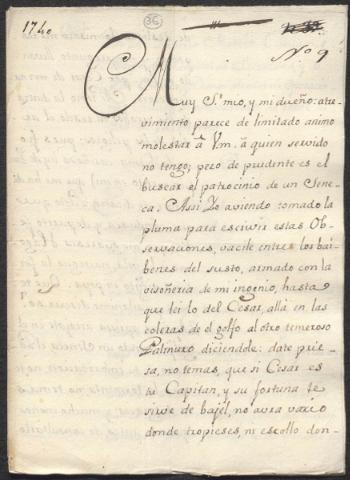 1740
36
Nº 9
Muy Sr. mio, y mi dueño: atre-
vimiento parece de limitado animo
molestar â Vm. â quien servido
no tengo; pero de prudente es el
buscar el patrocinio de un Sene-
ca. Assi Yo aviendo tomado la
pluma para escrivir estas Ob-
servaciones, vacile entre los bai-
benes del susto, armado con la
visoñeria de mi ingenio, hasta
que lei lo del Cesar, allà en las
coleras de el golfo al otro temeroso
Palinuro, diciendole: date prie-
sa, no temas, que si Cesar es
tu Capitan, y su fortuna te
sirve de bajel, no avra vario
donde tropieses, ni escollo don-